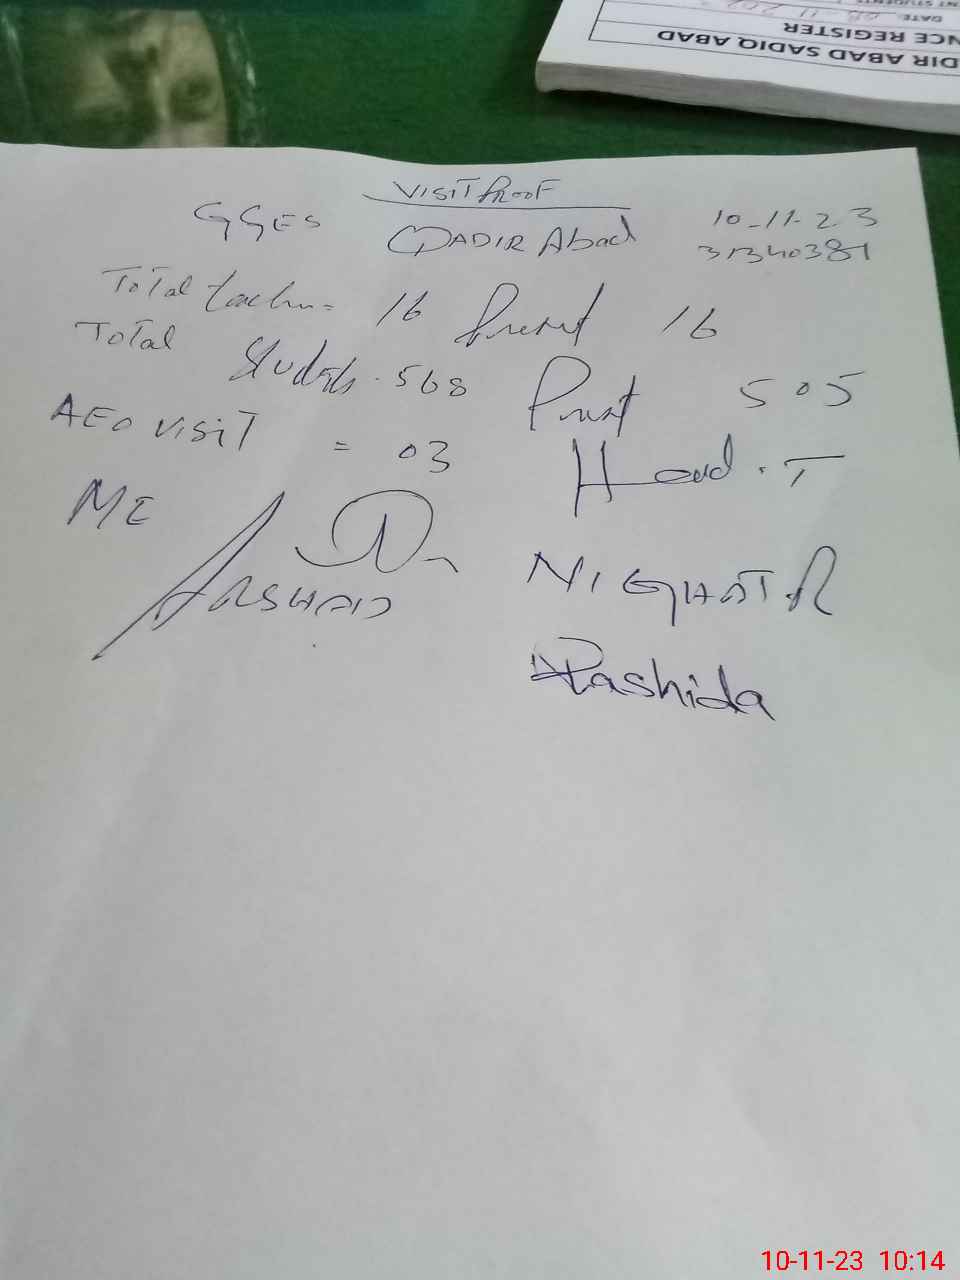 DIR ABAD SADIQ ABAD
NCE REGISTER
DATE:
VISIT PROOF
GGES QADIR Abad 10-11-23
31340381
Total teacher = 16 Present 16
Total Students . 568 Present 505
AEO visit = 03 Head . T
ME
ARSHAD
NIGHAT R
Rashida
10-11-23 10:14